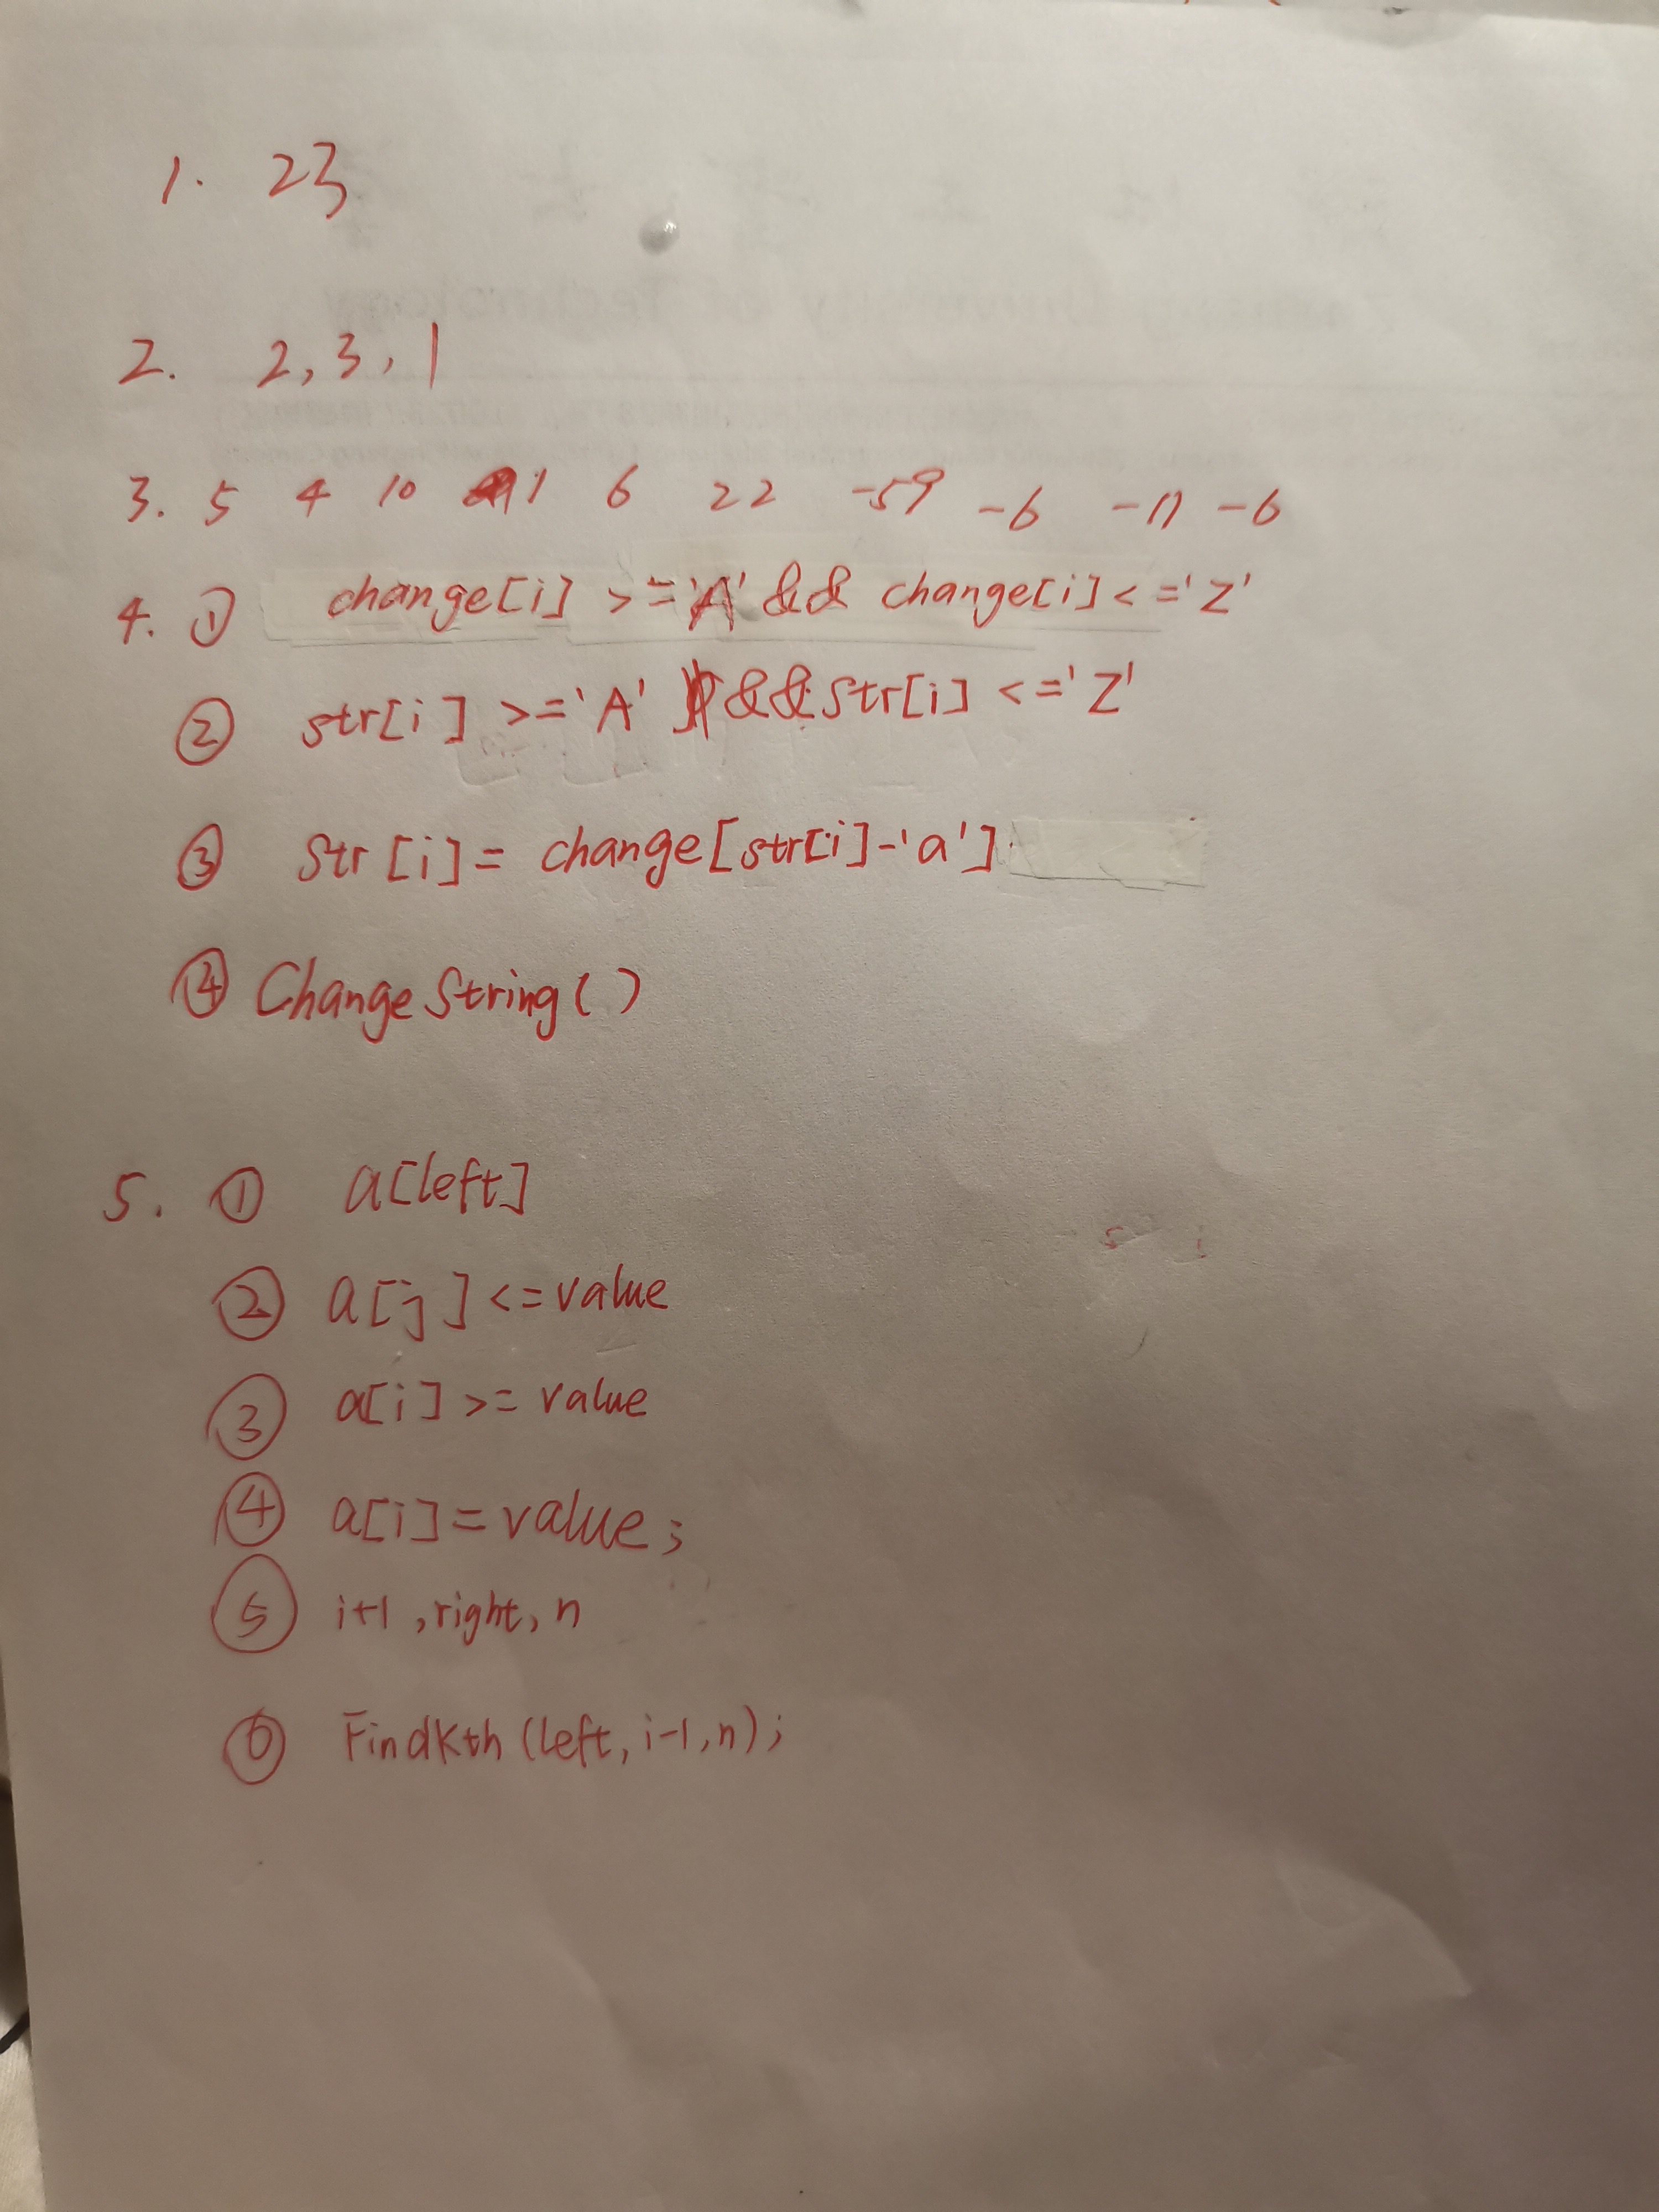 1. 23
2. 2, 3, 1
3. 5 4 10 1 6 22 -59 -6 -11 -6
4. ① change[i] >='A' && change[i]<='Z'
② str[i] >='A' &&str[i] <='Z'
③ Str[i]= change[str[i]-'a']
④ ChangeString()
5. ① a[left]
② a[j]<=value
③ a[i]>= value
④ a[i]=value;
⑤ i+1 ,right, n
⑥ FindKth (left, i-1, n);